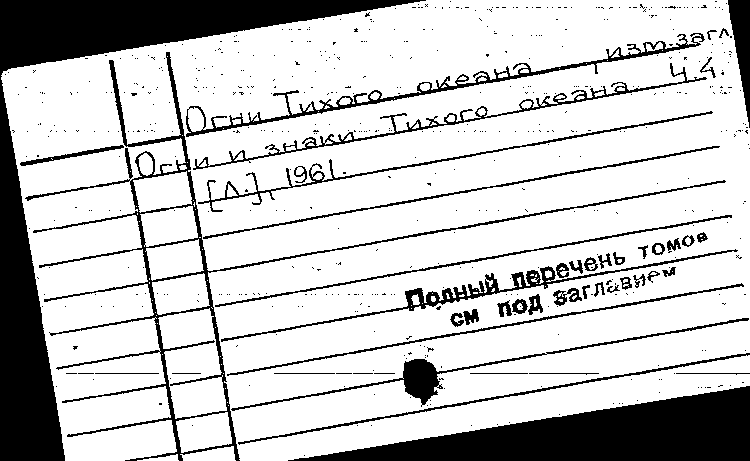 Огни Тихого океана, изм. загл.
Огни и знаки Тихого океана Ч.4.
[Л.], 1961.
Полный перечень томов
см под заглавием